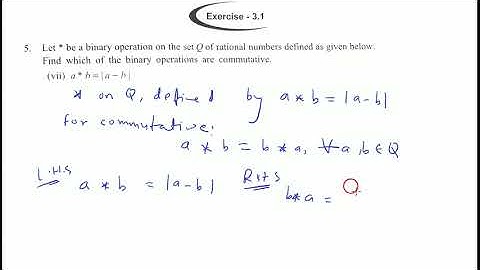 Exercise - 3.1
5. Let * be a binary operation on the set Q of rational numbers defined as given below.
Find which of the binary operations are commutative.
(vii) a * b = |a – b|
* on Q, defined by a * b = |a-b|
for commutative:
a * b = b * a, ∀ a,b ∈ Q
L.H.S a * b = |a-b| R.H.S b*a =